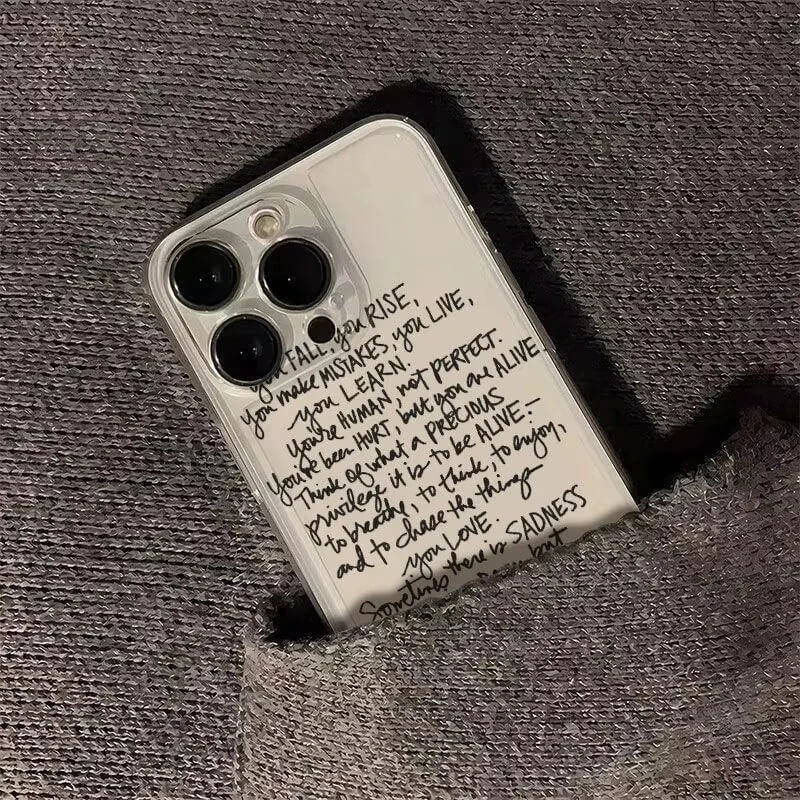 you FALL, you RISE,
you make MISTAKES, you LIVE,
you LEARN.
You're HUMAN, not PERFECT.
You've been HURT, but you are ALIVE.
Think of what a PRECIOUS
privilege it is to be ALIVE.-
to breathe, to think, to enjoy,
and to chase the things
you LOVE.
Sometimes there is SADNESS
but